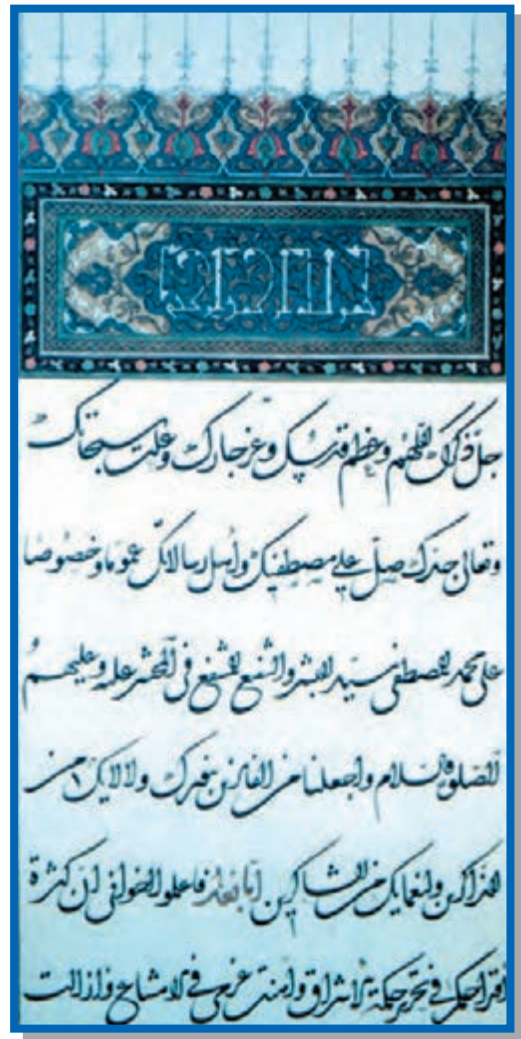 جل ذكرك اللهم وعظم قدسك وعز جارك وعلت سبحاتك
وتعالى جدك صل على مصطفيك وأهل رسالاتك عموما وخصوصا
على محمد المصطفى سيد البشر والشفيع المشفع في المحشر عليه وعليهم
الصلوة والسلام واجعلنا من الفائزين بنورك ولالائك من
الذاكرين ولنعمايك من الشاكرين اما بعد فاعلموا اخواني ان كثرة
اقتراحكم في تحرير حكمة الاشراق واوهنت عزمي في الامتناع وازالت